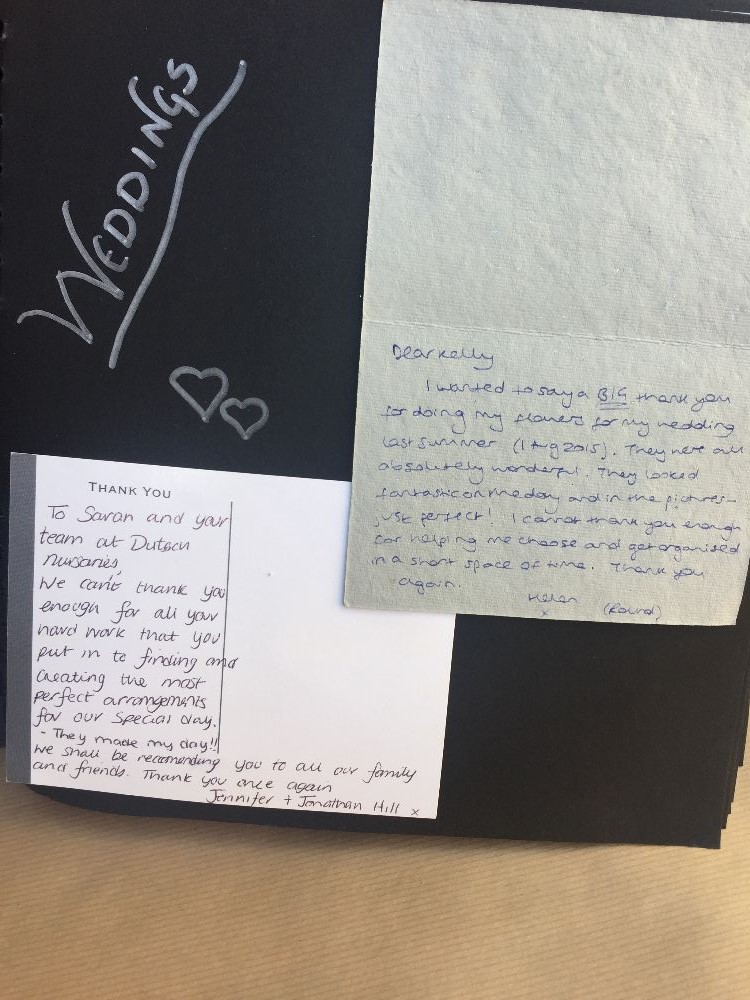 WEDDINGS
Dear Kelly
I wanted to say a BIG thank you
for doing my flowers for my wedding
last summer (1 Aug 2015). They were all
absolutely wonderful. They looked
fantastic on the day and in the pictures -
just perfect! I cannot thank you enough
for helping me choose and get organised
in a short space of time. Thank you
again.
Helen
x (Round)
THANK YOU
To Sarah and your
team at Dutech
nurseries,
We can't thank you
enough for all your
hard work that you
put in to finding and
creating the most
perfect arrangements
for our special day.
- They made my day!!
We shall be recomending you to all our family
and friends. Thank you once again
Jennifer + Jonathan Hill x